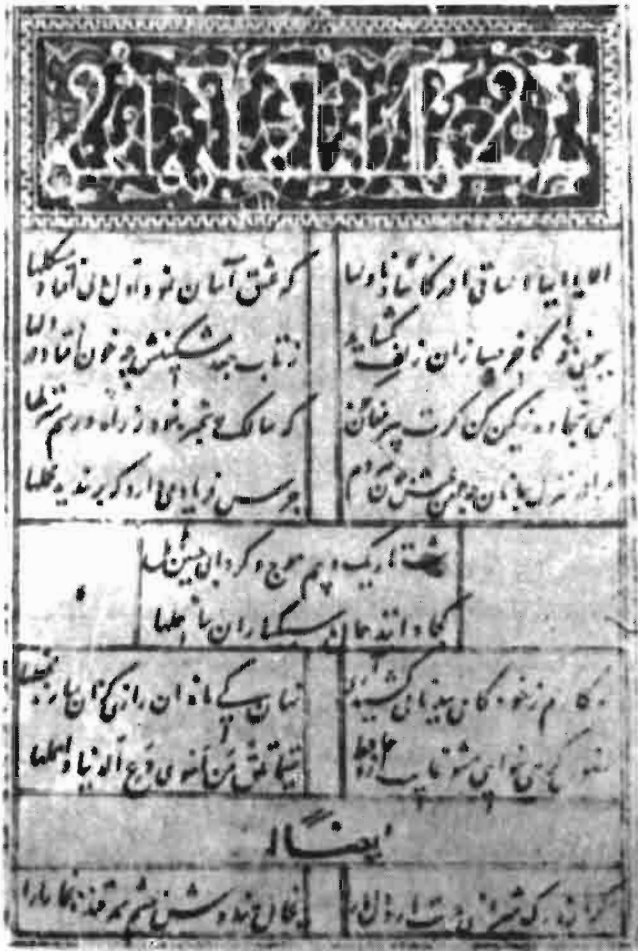 الا یا ایها الساقی ادر کاسا و ناولها که عشق آسان نمود اول ولی افتاد مشکلها
ببوی نافه کاخر صبا زان زلف بگشاید ز تاب جعد مشکینش چه خون افتاد در دلها
بمی سجاده رنگین کن گرت پیر مغان گوید که سالک بیخبر نبود ز راه و رسم منزلها
مرا در منزل جانان چه امن عیش چون هر دم جرس فریاد میدارد که بربندید محملها
شب تاریک و بیم موج و گردابی چنین هایل
کجا دانند حال ما سبکباران ساحلها
همه کارم ز خودکامی ببدنامی کشید آخر نهان کی ماند آن رازی کزان سازند محفلها
حضوری گر همی خواهی ازو غایب مشو حافظ متی ما تلق من تهوی دع الدنیا و اهملها
ایضاً له
اگر آن ترک شیرازی بدست آرد دل ما را بخال هندوش بخشم سمرقند و بخارا را